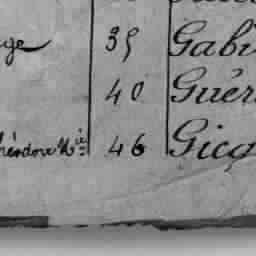 35 Gabi
40 Guér
héodore Nie 46 Gicq